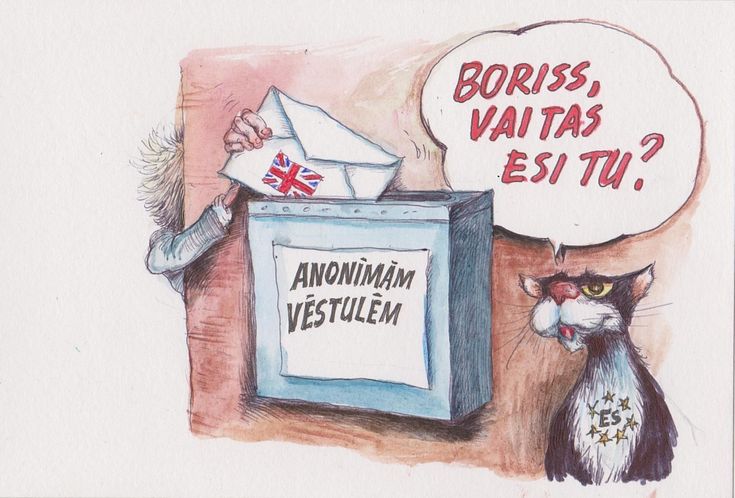 BORISS,
VAI TAS
ESI TU?
ANONĪMĀM
VĒSTULĒM
ES